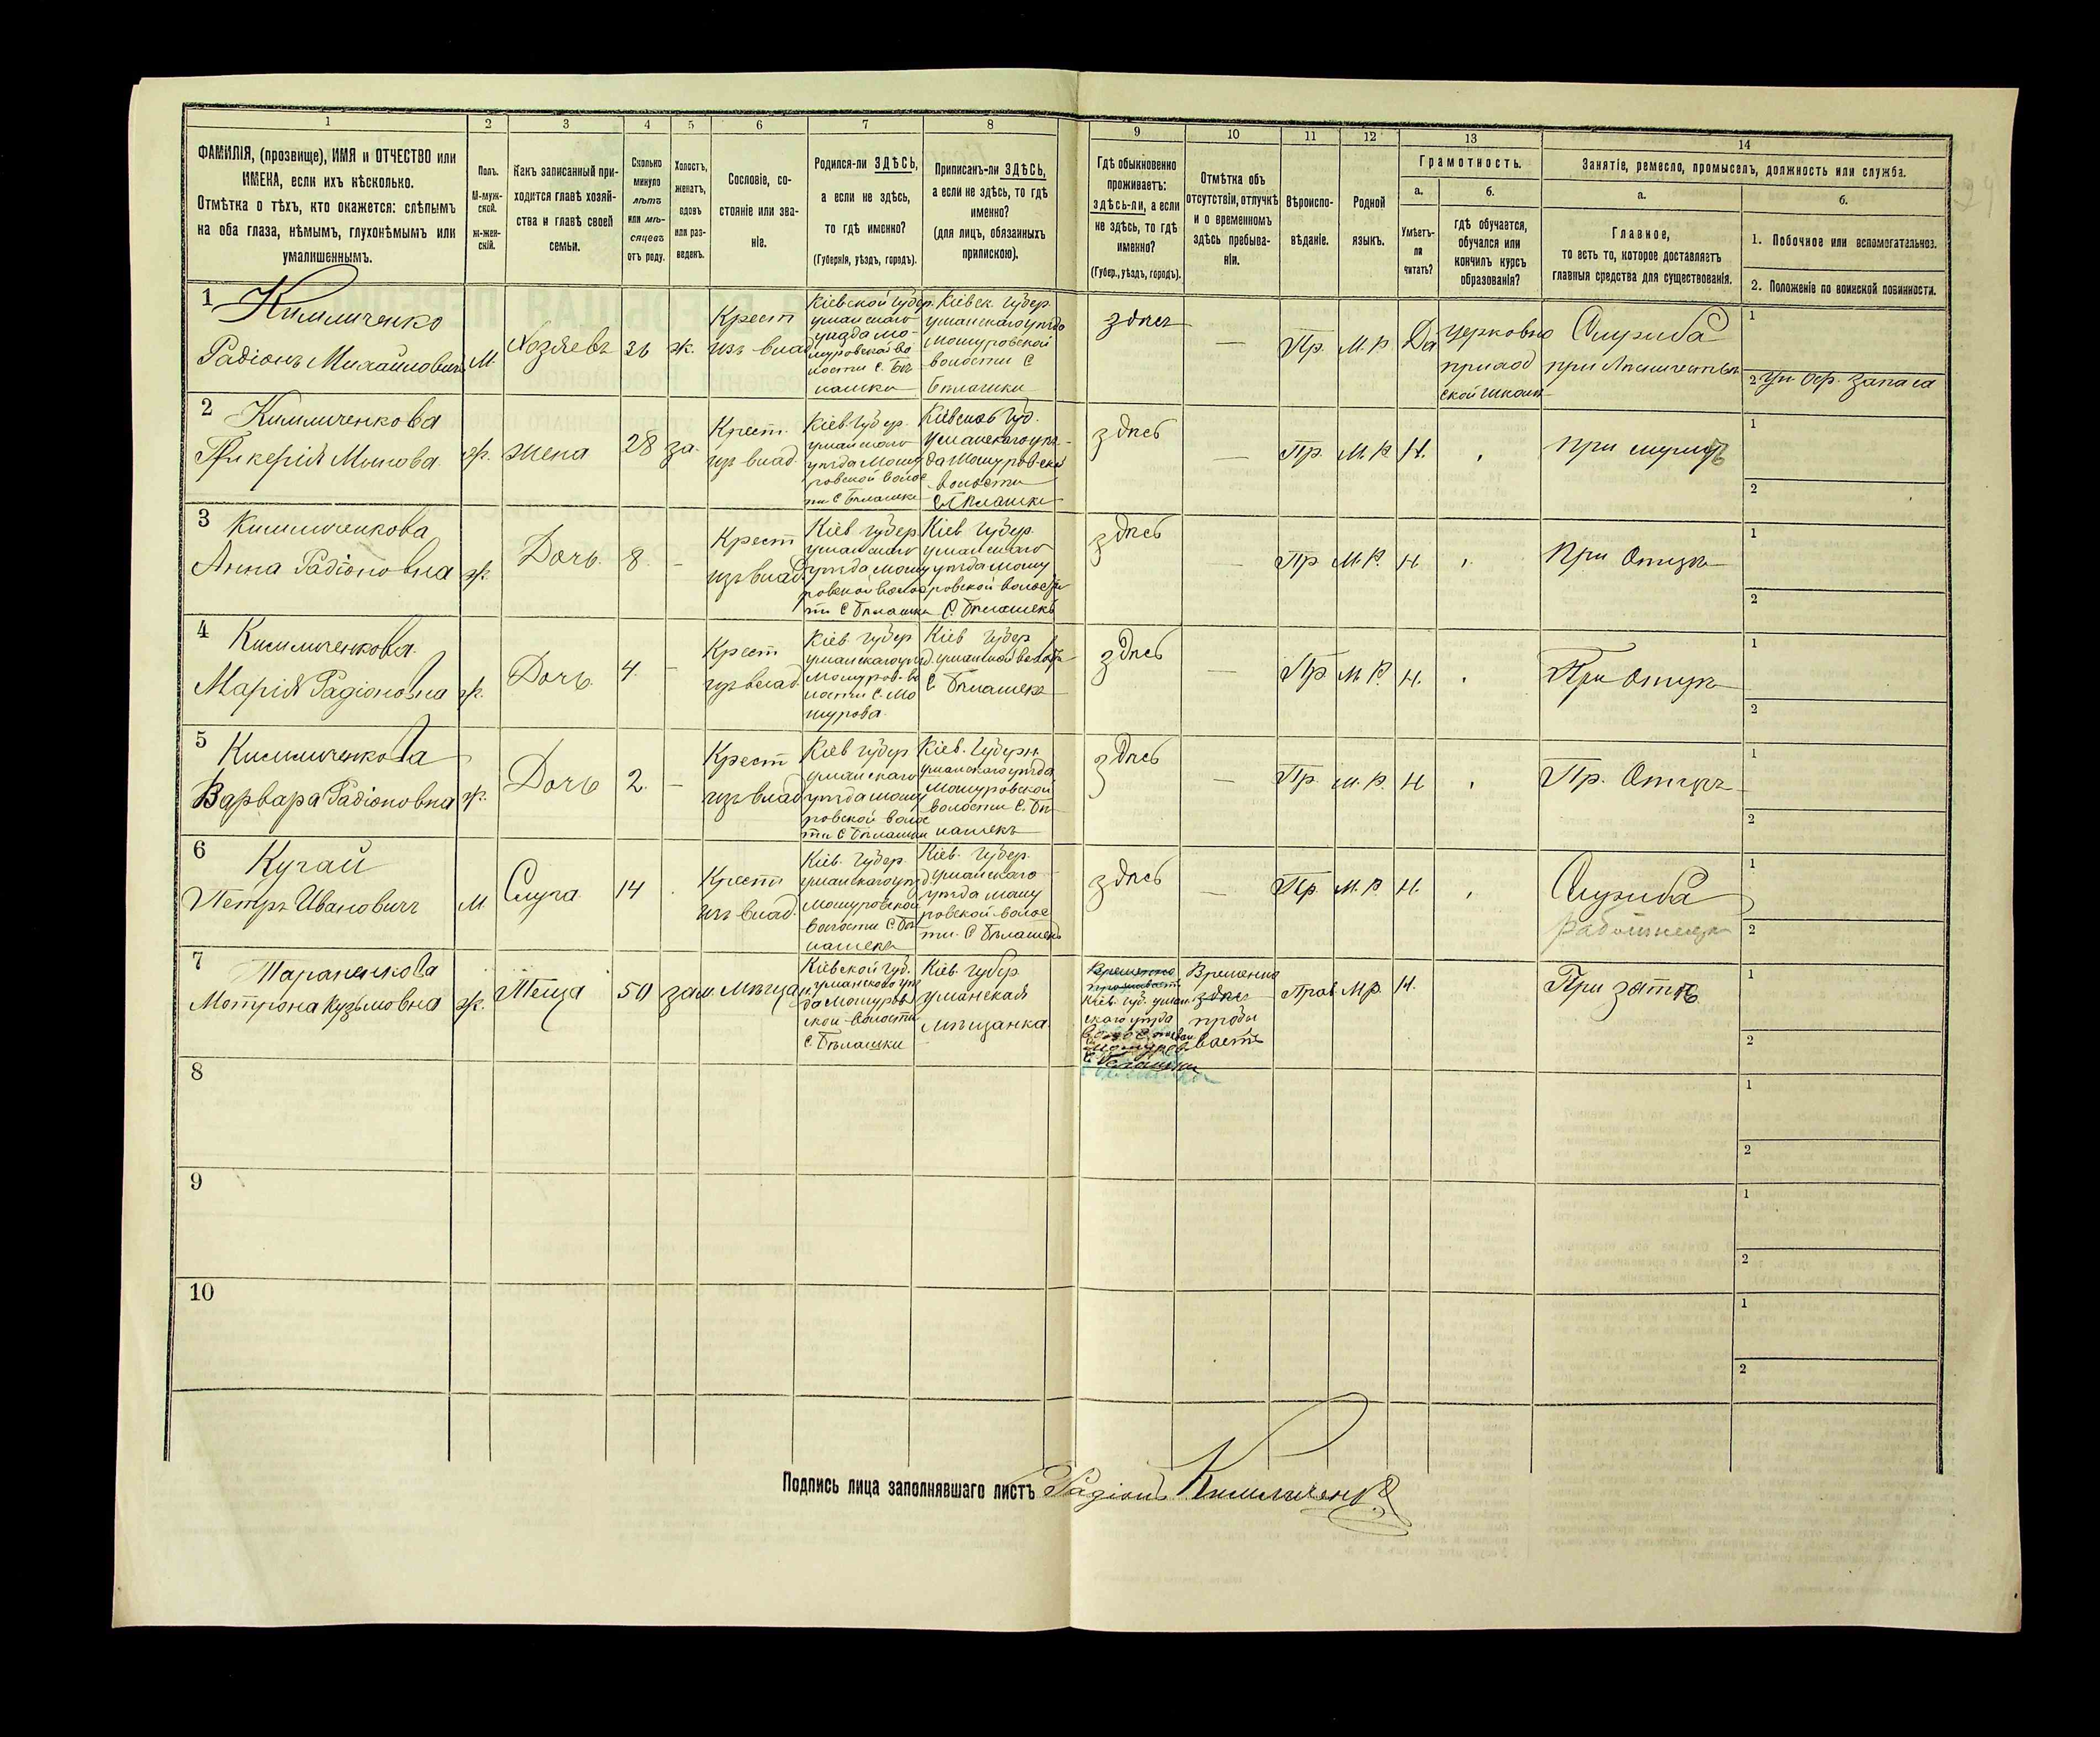 1 2 3 4 5 6 7 8 9 10 11 12 13 14
ФАМИЛІЯ, (прозвище), ИМЯ и ОТЧЕСТВО или
ИМЕНА, если ихъ нѣсколько.
Отмѣтка о тѣхъ, кто окажется: слѣпымъ
на оба глаза, нѣмымъ, глухонѣмымъ или
умалишеннымъ.
Полъ.
М-муж-
ской.
ж-жен-
скій.
Какъ записанный при-
ходится главѣ хозяй-
ства и главѣ своей
семьи.
Сколько
минуло
лѣтъ
или мѣ-
сяцевъ
отъ роду.
Холостъ,
женатъ,
вдовъ
или раз-
веденъ.
Сословіе, со-
стояніе или зва-
ніе.
Родился-ли ЗДѢСЬ,
а если не здѣсь,
то гдѣ именно?
(Губернія, уѣздъ, городъ).
Приписанъ-ли ЗДѢСЬ,
а если не здѣсь, то гдѣ
именно?
(для лицъ, обязанныхъ
припискою).
Гдѣ обыкновенно
проживаетъ:
здѣсь-ли, а если
не здѣсь, то гдѣ
именно?
(Губер., уѣздъ, городъ).
Отмѣтка объ
отсутствіи, отлучкѣ
и о временномъ
здѣсь пребыва-
ніи.
Вѣроиспо-
вѣданіе.
Родной
языкъ.
Грамотность.
а.
Умѣетъ-
ли
читать?
б.
гдѣ обучается,
обучался или
кончилъ курсъ
образованія?
Занятіе, ремесло, промыселъ, должность или служба.
а.
Главное,
то есть то, которое доставляетъ
главныя средства для существованія.
б.
1. Побочное или вспомогательное.
2. Положеніе по воинской повинности.
1
Радіонъ Михайловичъ
М.
Хозяевъ
36
ж.
Крест
изъ влад
Кіевской губер.
уманскаго
уѣзда Мо-
шуровской во
лости с. Бѣ
лашки
Кіевск. губер.
уманскаго уѣзда
Мошуровской
волости С
Бѣлашки
здѣсь
—
Пр.
М. Р.
Да
церковно
приход
ской школѣ
Служба
1
2 Ун. Оф. запаса
2
Мины
ж.
жена
28
за.
Крест.
изъ влад.
Кіев. губер.
уманскаго
уѣзда Мошу
ровской волос
ти С Бѣлашки
Кіевской Губ.
Уманскаго уѣз-
да Мошуровской
волости
С Бѣлашки
здѣсь
—
Пр.
М. Р.
Н.
При мужѣ
1
2
3
Анна Радіоновна
ж.
Дочь.
8.
-
Крест
изъ влад.
Кіев губер.
уманскаго
уѣзда Мошу
ровской волос
ти С Бѣлашки
Кіев губер.
уманскаго
уѣзда Мошу
ровской волости
С. Бѣлашекъ
здѣсь
Пр
М. Р.
Н.
При Отцѣ
1
2
4
Марія Радіоновна
ж.
Дочь.
4.
-
Крест
изъ влад.
Кіев губер
уманскаго уѣзд.
Мошуров. во
лости С. Мо
шурова.
Кіев губер
уманской волости
С Бѣлашекъ
здѣсь
—
Пр
М. Р.
Н.
При отцѣ
1
2
5
Варвара Радіоновна
ж.
Дочь
2.
-
Крест
изъ влад
Кіев губер
уманскаго
уѣзда Мошу
ровской волос
ти С Бѣлашки
Кіев. Губерн.
уманскаго уѣзда
Мошуровской
волости С. Бѣ
лашекъ
здѣсь
—
Пр.
М. Р.
Н
Пр. Отцѣ
1
2
6 Кучай
Петръ Ивановичъ
М.
Слуга
14
Крест
изъ влад.
Кіев. губер.
уманскаго уѣзд.
Мошуровской
волости С. Бѣ
лашекъ
Кіев. губер.
уманскаго
уѣзда Мошу
ровской волос
ти. С Бѣлашекъ
здѣсь
—
Пр.
М. Р
Н.
Служба
1
2
7 Тараненкова
Мотрона Кузьмовна
ж.
Теща
50
зам.
Мѣщан.
Кіевской губ.
уманскаго уѣз
да Мошуров
ской волости
с. Бѣлашки
Кіев губер.
уманская
мѣщанка.
Временно
проживаетъ
Кіев. губ. уман
скаго уѣзда
Временно
здѣсь
пребы
ваетъ
Прав
М. Р.
Н.
При зятѣ
1
2
8
1
2
9
1
2
10
1
2
Подпись лица заполнявшаго листъ Радіонъ